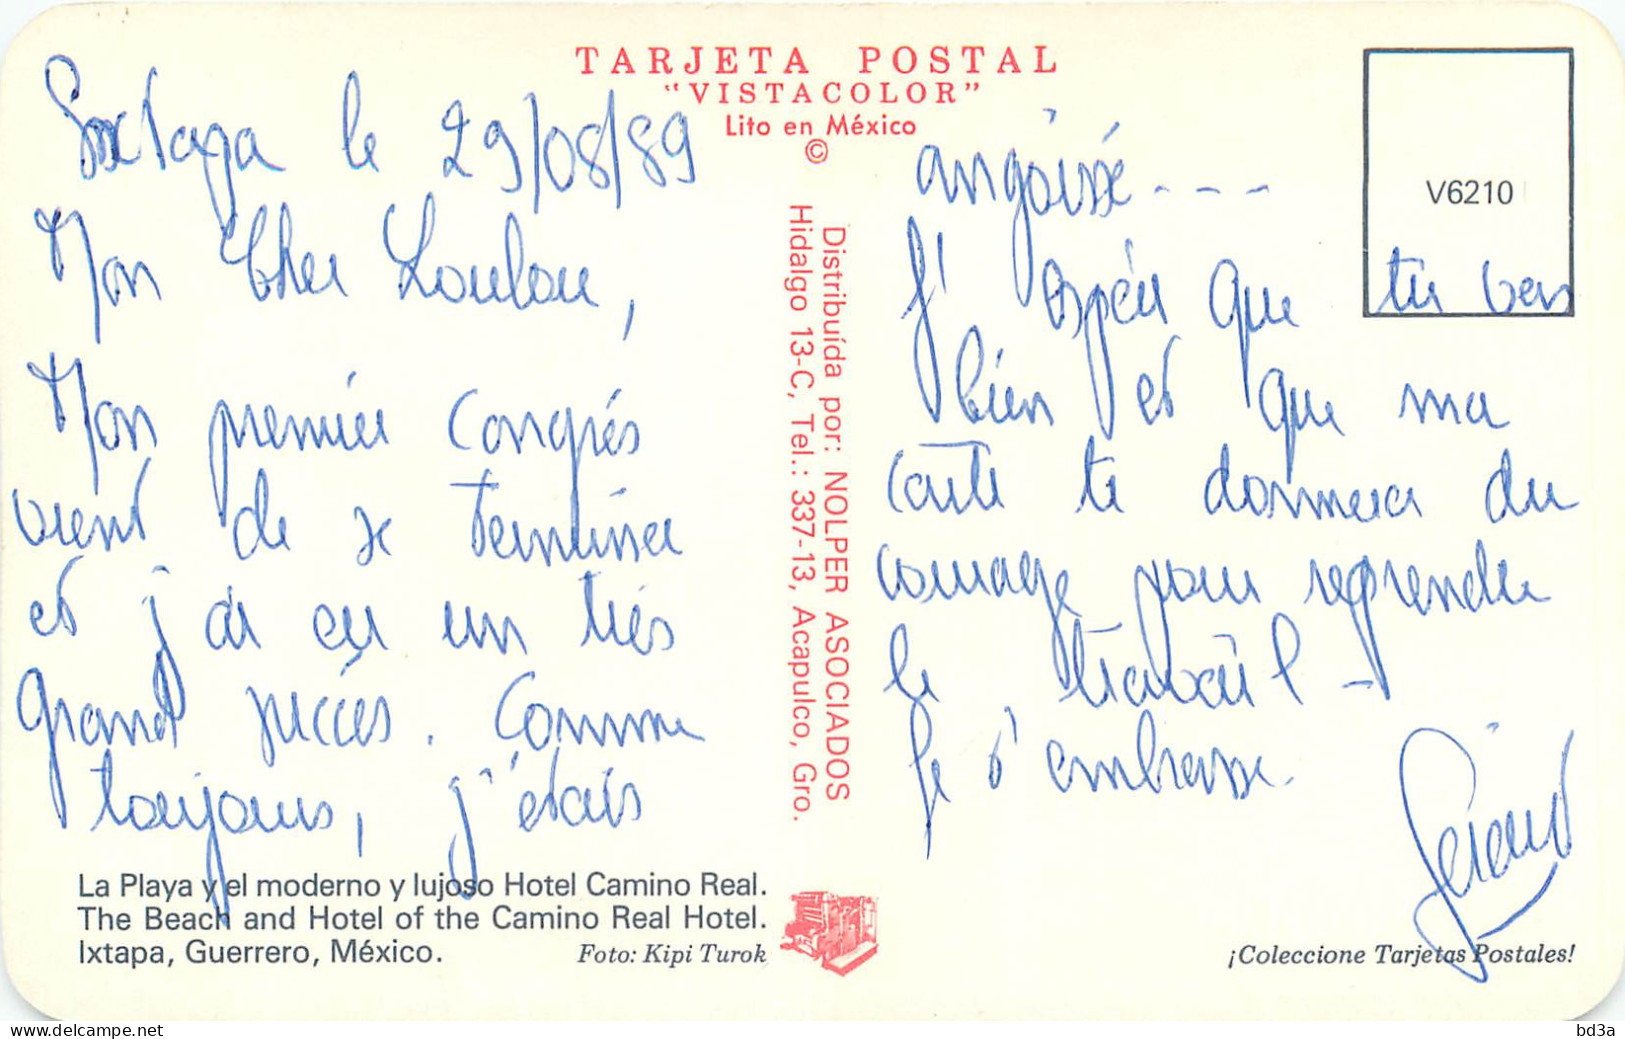 TARJETA POSTAL
"VISTACOLOR"
Lito en México
©
Distribuída por: NOLPER ASOCIADOS
Hidalgo 13-C, Tel.: 337-13, Acapulco, Gro.
V6210
le 29/08/89
Mon Cher Loulou,
Mon premier Congrès
vient de se terminer
et j'ai eu un très
grand succès. Comme
toujours, j'étais
angoissé - - -
J'espère que tu vas
bien et que ma
carte te donnera du
courage pour reprendre
le travail -
Je t'embrasse.
Gérard
La Playa y el moderno y lujoso Hotel Camino Real.
The Beach and Hotel of the Camino Real Hotel.
Ixtapa, Guerrero, México.
Foto: Kipi Turok
¡Coleccione Tarjetas Postales!
www.delcampe.net
bd3a